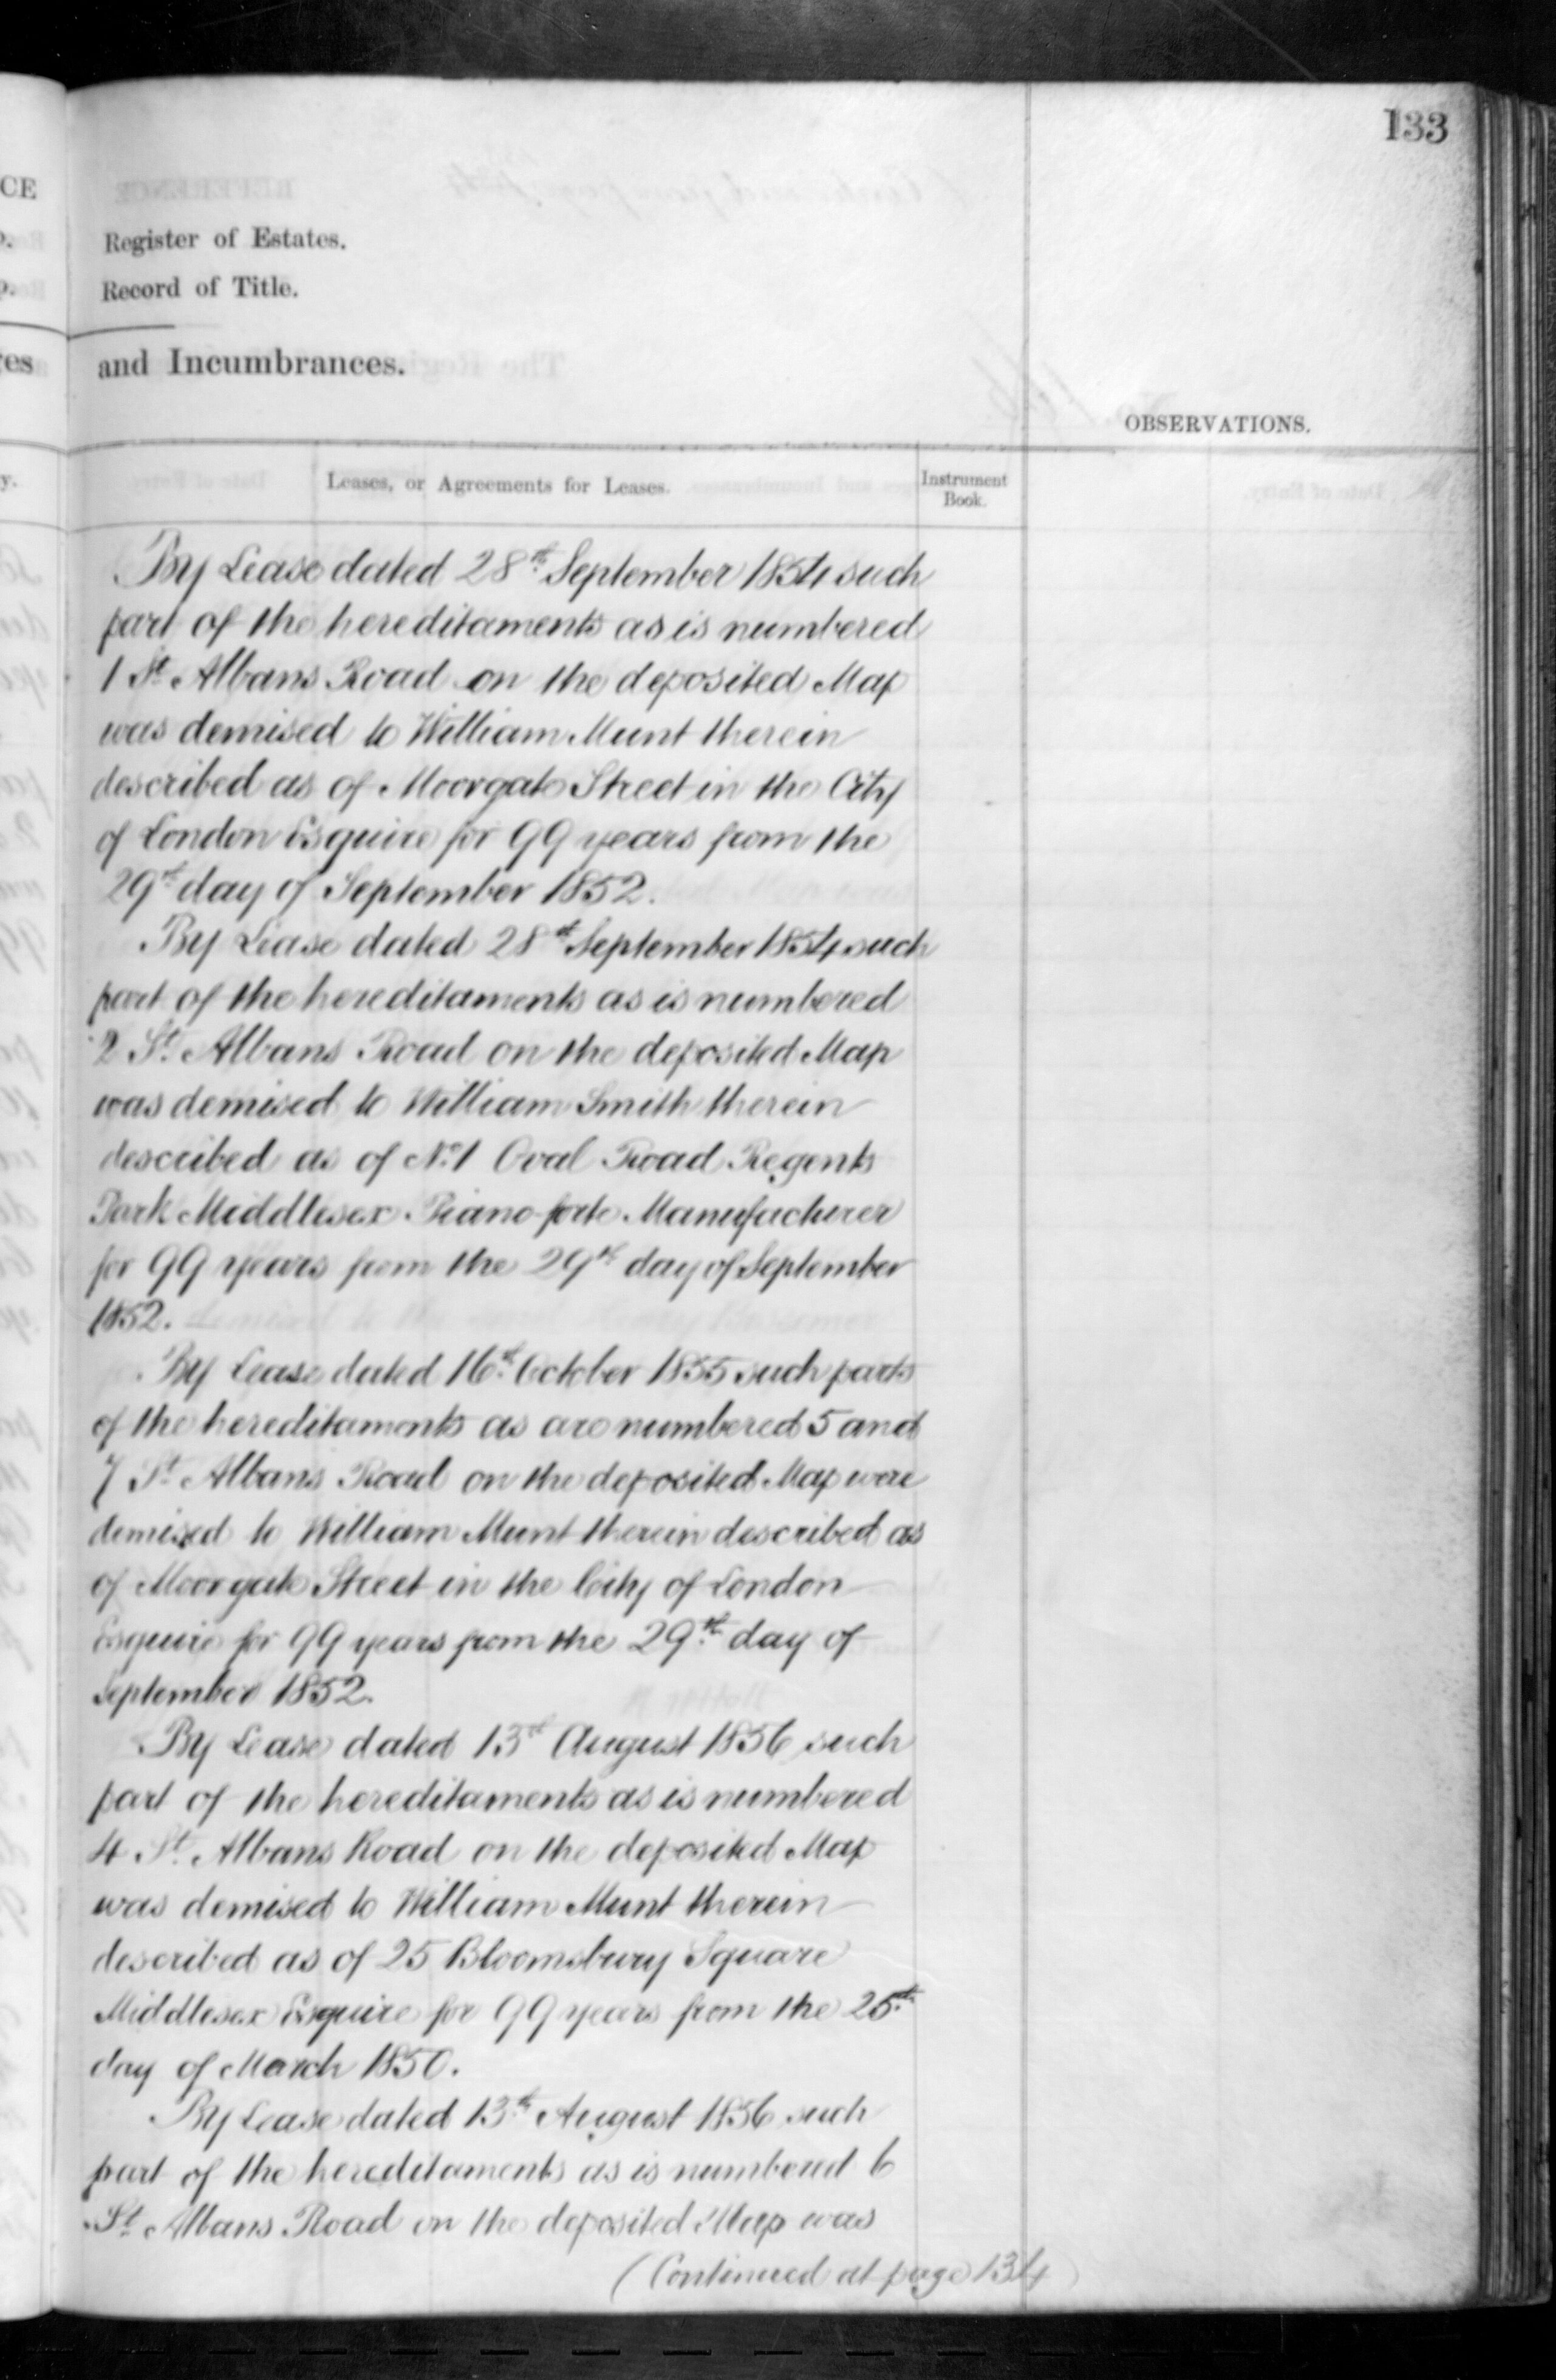 133
CE
Register of Estates.
Record of Title.
and Incumbrances.
OBSERVATIONS.
Leases, or Agreements for Leases.
Instrument Book.
By Lease dated 28th September 1854 such
part of the hereditaments as is numbered
1 St Albans Road on the deposited Map
was demised to William Munt therein
described as of Moorgate Street in the City
of London Esquire for 99 years from the
29th day of September 1852.
By Lease dated 28th September 1854 such
part of the hereditaments as is numbered
2 St. Albans Road on the deposited Map
was demised to William Smith therein
described as of No. 1 Oval Road Regents
Park Middlesex Piano-forte Manufacturer
for 99 years from the 29th day of September
1852.
By Lease dated 16th October 1855 such parts
of the hereditaments as are numbered 5 and
7 St Albans Road on the deposited Map were
demised to William Munt therein described as
of Moorgate Street in the City of London
Esquire for 99 years from the 29th day of
September 1852.
By Lease dated 13th August 1856 such
part of the hereditaments as is numbered
4 St. Albans Road on the deposited Map
was demised to William Munt therein
described as of 25 Bloomsbury Square
Middlesex Esquire for 99 years from the 25th
day of March 1850.
By Lease dated 13th August 1856 such
part of the hereditaments as is numbered 6
St. Albans Road on the deposited Map was
(Continued at page 134)